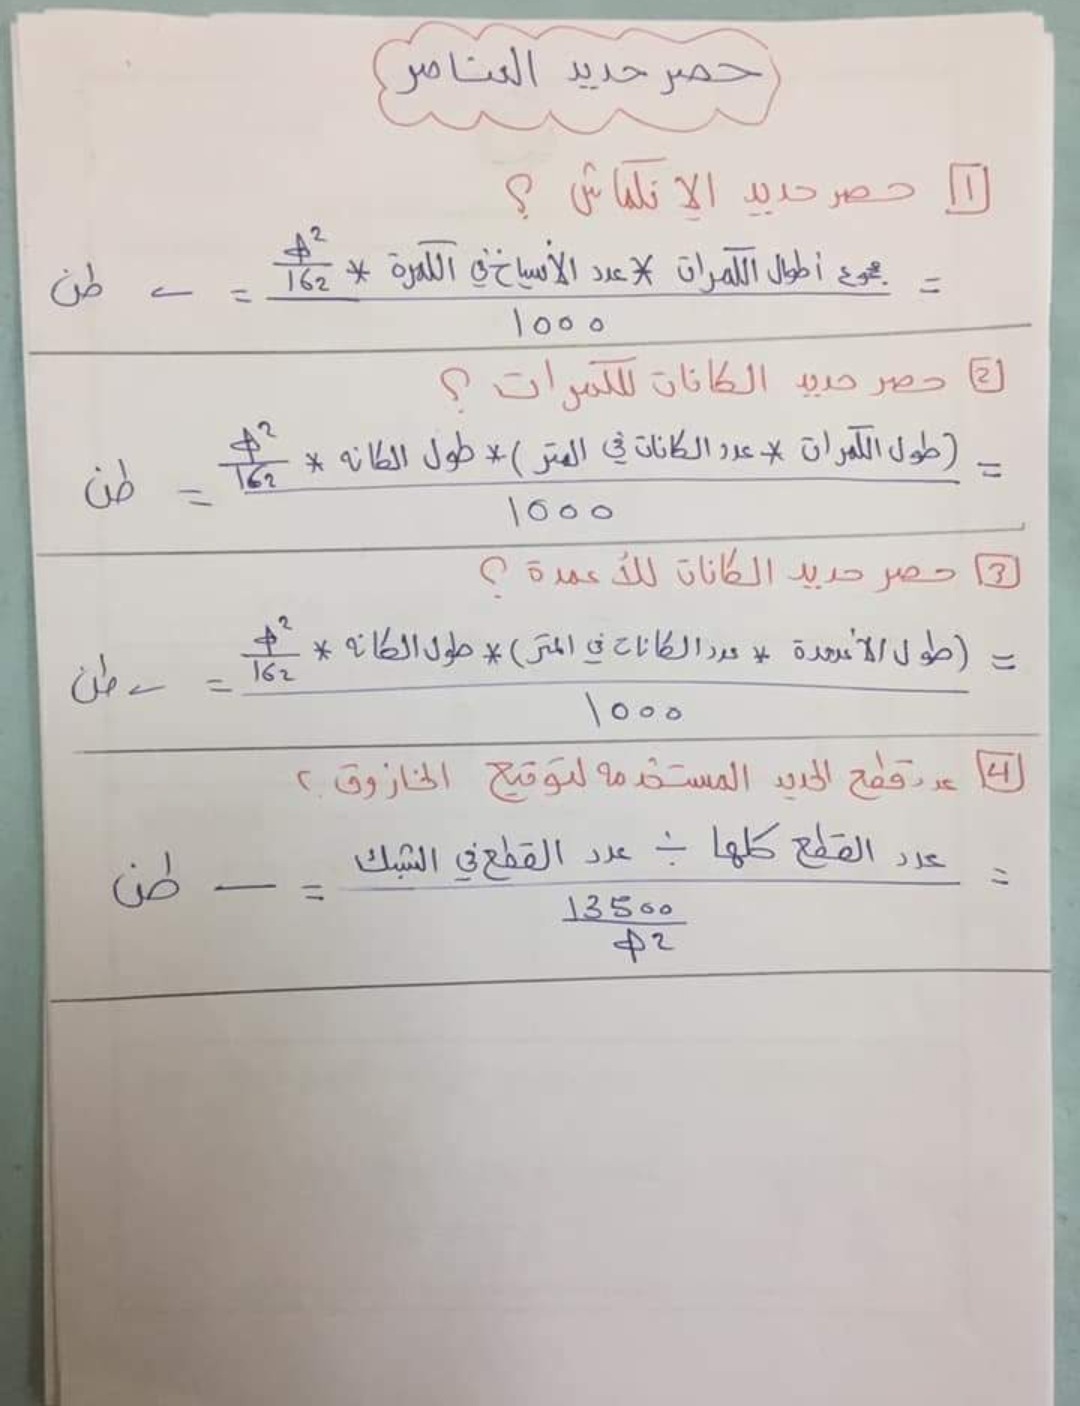 حصر حديد العناصر
1 حصر حديد الانكماش ؟
= مجموع أطوال الكمرات * عدد الأسياخ في الكمرة * ɸ²/162 = ـــ طن
1000
2 حصر حديد الكانات للكمرات ؟
= (طول الكمرات * عدد الكانات في المتر) * طول الكانه * ɸ²/162 = طن
1000
3 حصر حديد الكانات للأعمدة ؟
= (طول الأعمدة * عدد الكانات في المتر) * طول الكانه * ɸ²/162 = ـــ طن
1000
4 عدد قطع الحديد المستخدمه لتوقيع الخازوق ؟
= عدد القطع كلها ÷ عدد القطع في الشيك = ـــ طن
13500
ɸ2